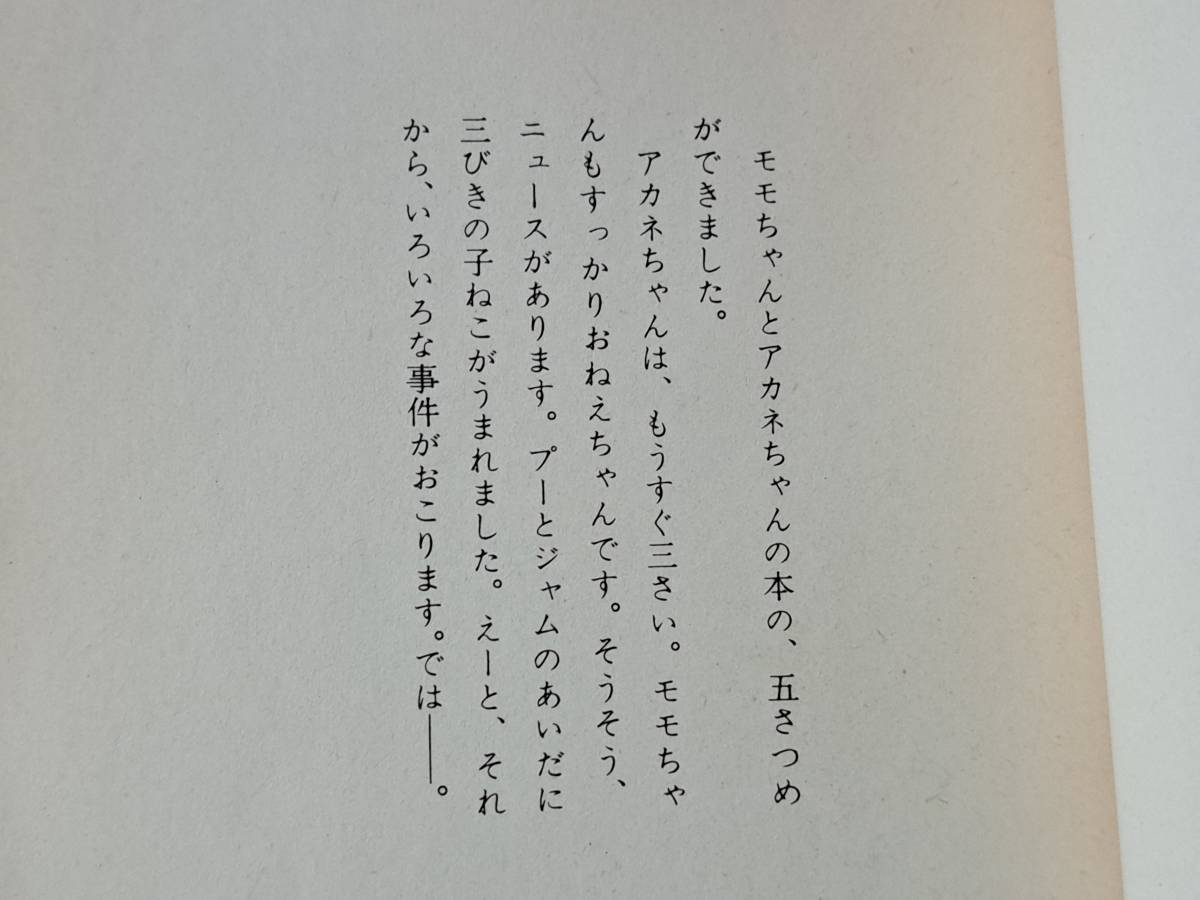 モモちゃんとアカネちゃんの本の、五さつめ
ができました。
アカネちゃんは、もうすぐ三さい。モモちゃ
んもすっかりおねえちゃんです。そうそう、
ニュースがあります。プーとジャムのあいだに
三びきの子ねこがうまれました。えーと、それ
から、いろいろな事件がおこります。では――。